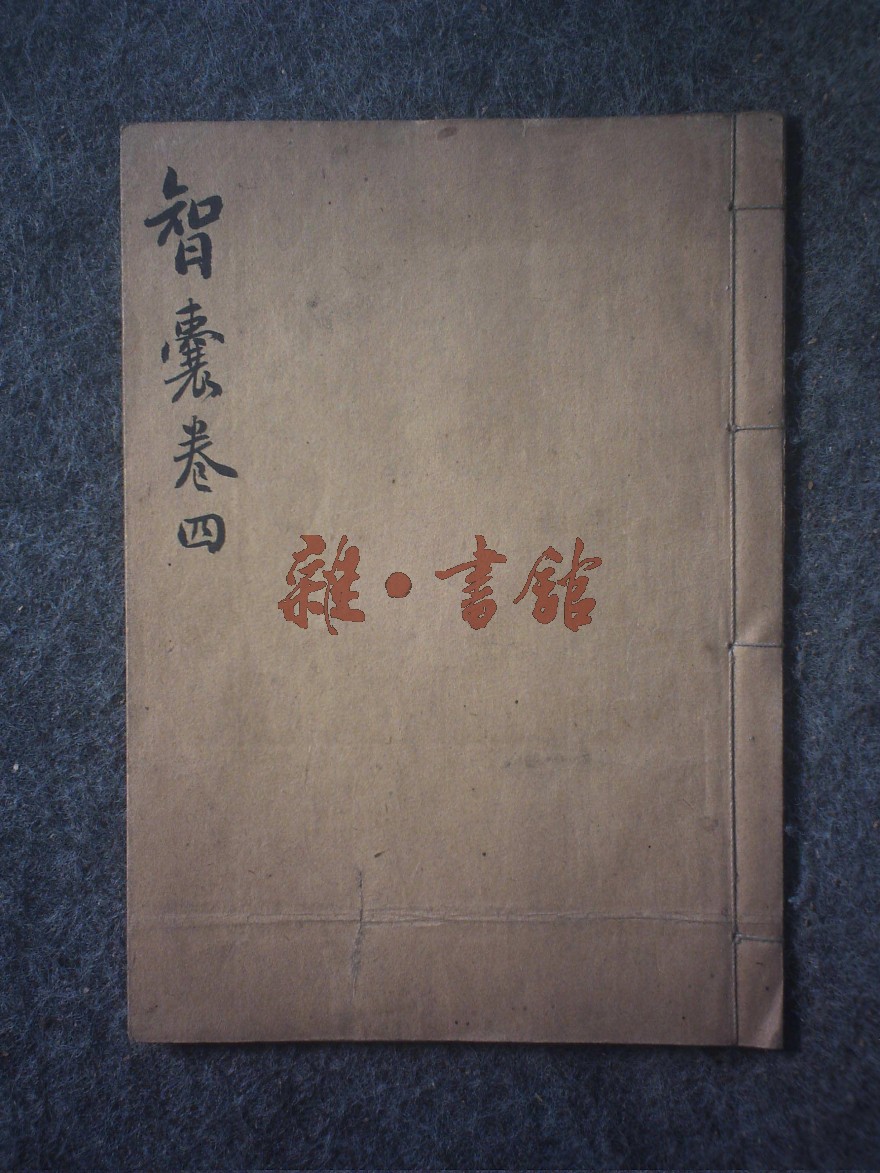 智囊卷四
雜·書館